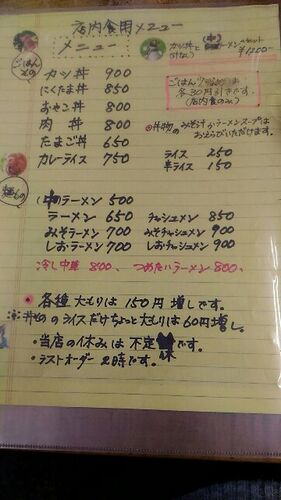 店内食用メニュー
メニュー
カツ丼と 中ラーメン のセット
¥1200-
ごはんもの
カツ丼 900
にくたま丼 850
おやこ丼 800
肉丼 800
たまご丼 650
カレーライス 750
各30円引きです。
(店内食のみ)
丼物のみそ汁かラーメンスープは
おえらびいただけます。
ライス 250
半ライス 150
麺もの
ラーメン 500
ラーメン 650 チャシュメン 850
みそラーメン 700 みそチャシュメン 900
しおラーメン 700 しおチャシュメン 900
冷し中華 800、つめたいラーメン 800、
各種 大もりは 150円 増しです。
のライスだけちょっと大もりは60円増し。
・当店の休みは不定休です。
・ラストオーダー 2時です。